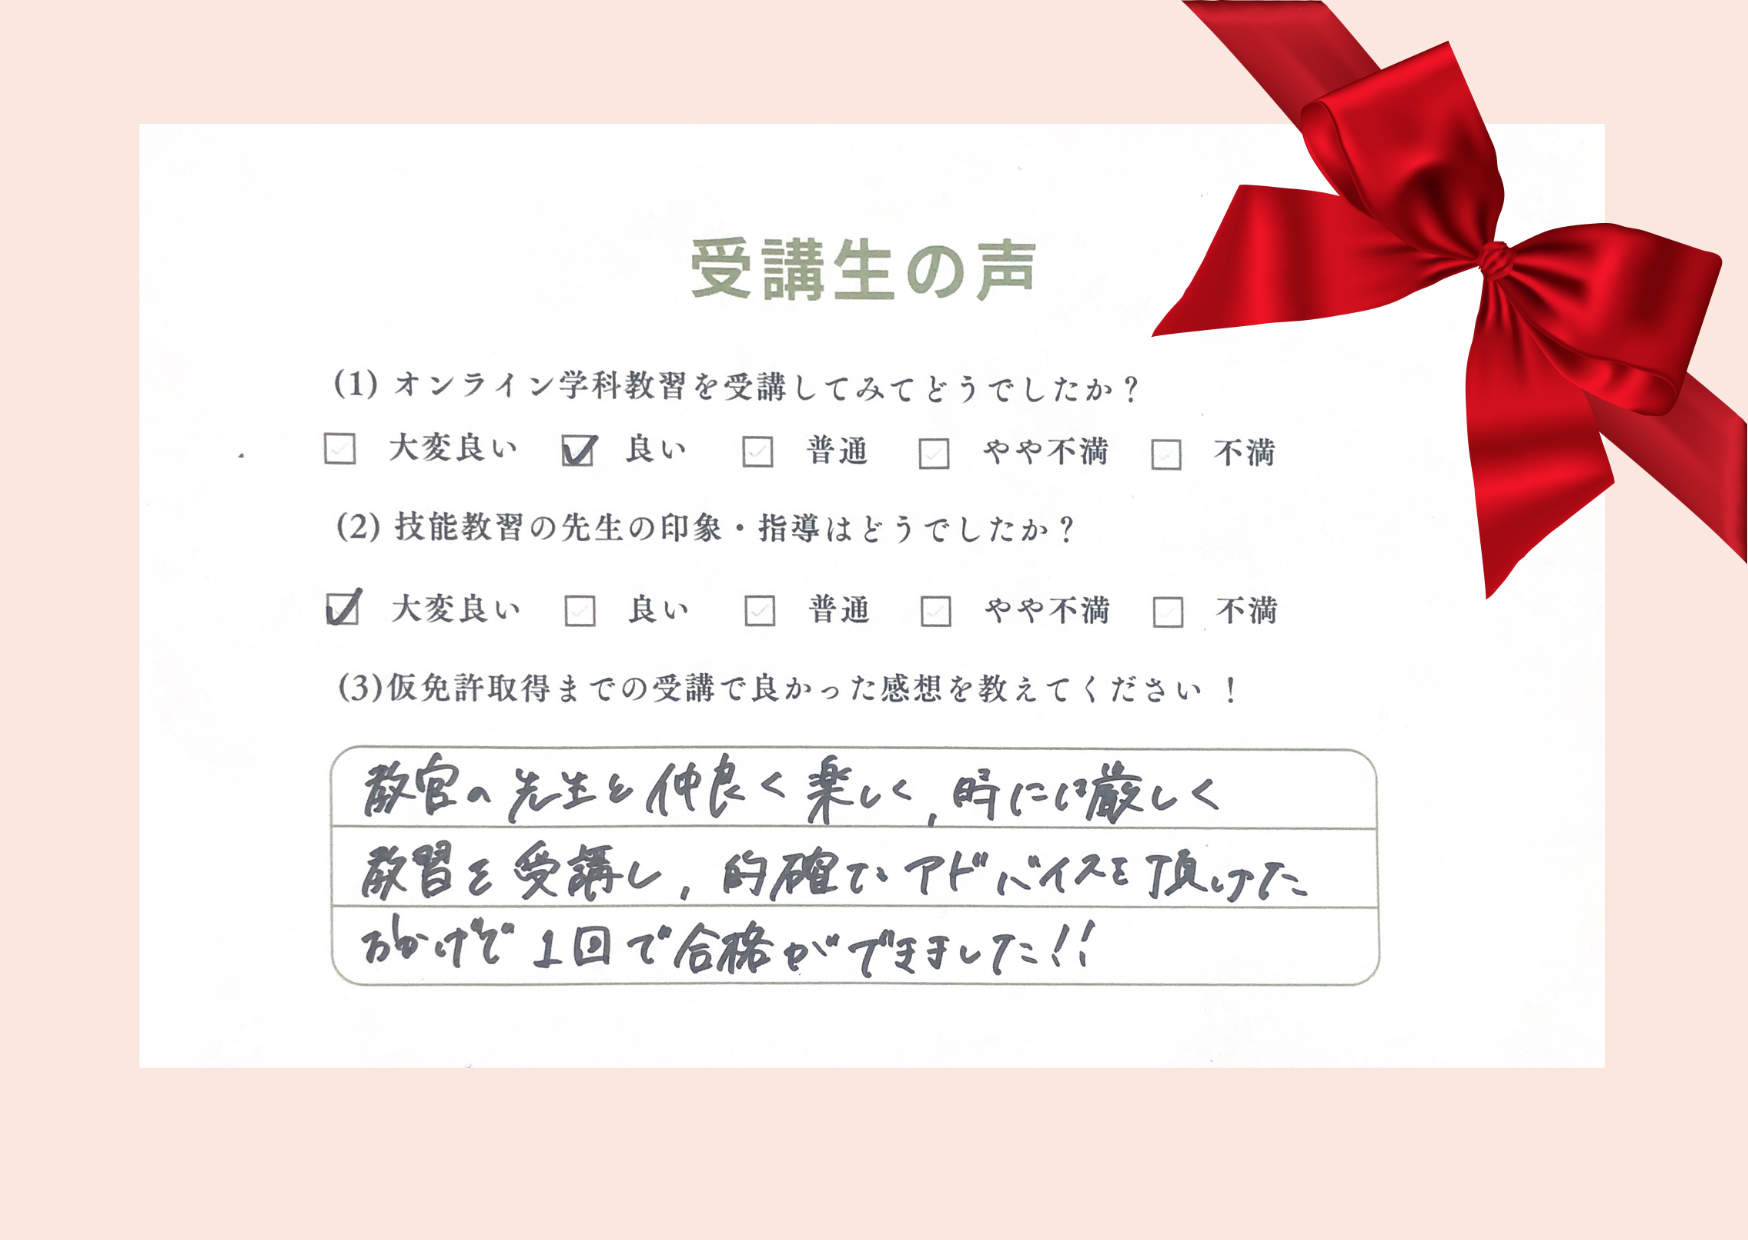 受講生の声
(1) オンライン学科教習を受講してみてどうでしたか？
☐ 大変良い ☑ 良い ☐ 普通 ☐ やや不満 ☐ 不満
(2) 技能教習の先生の印象・指導はどうでしたか？
☑ 大変良い ☐ 良い ☐ 普通 ☐ やや不満 ☐ 不満
(3)仮免許取得までの受講で良かった感想を教えてください！
教官の先生と仲良く楽しく,時には厳しく
教習を受講し,的確なアドバイスを頂けた
おかげで1回で合格ができました!!